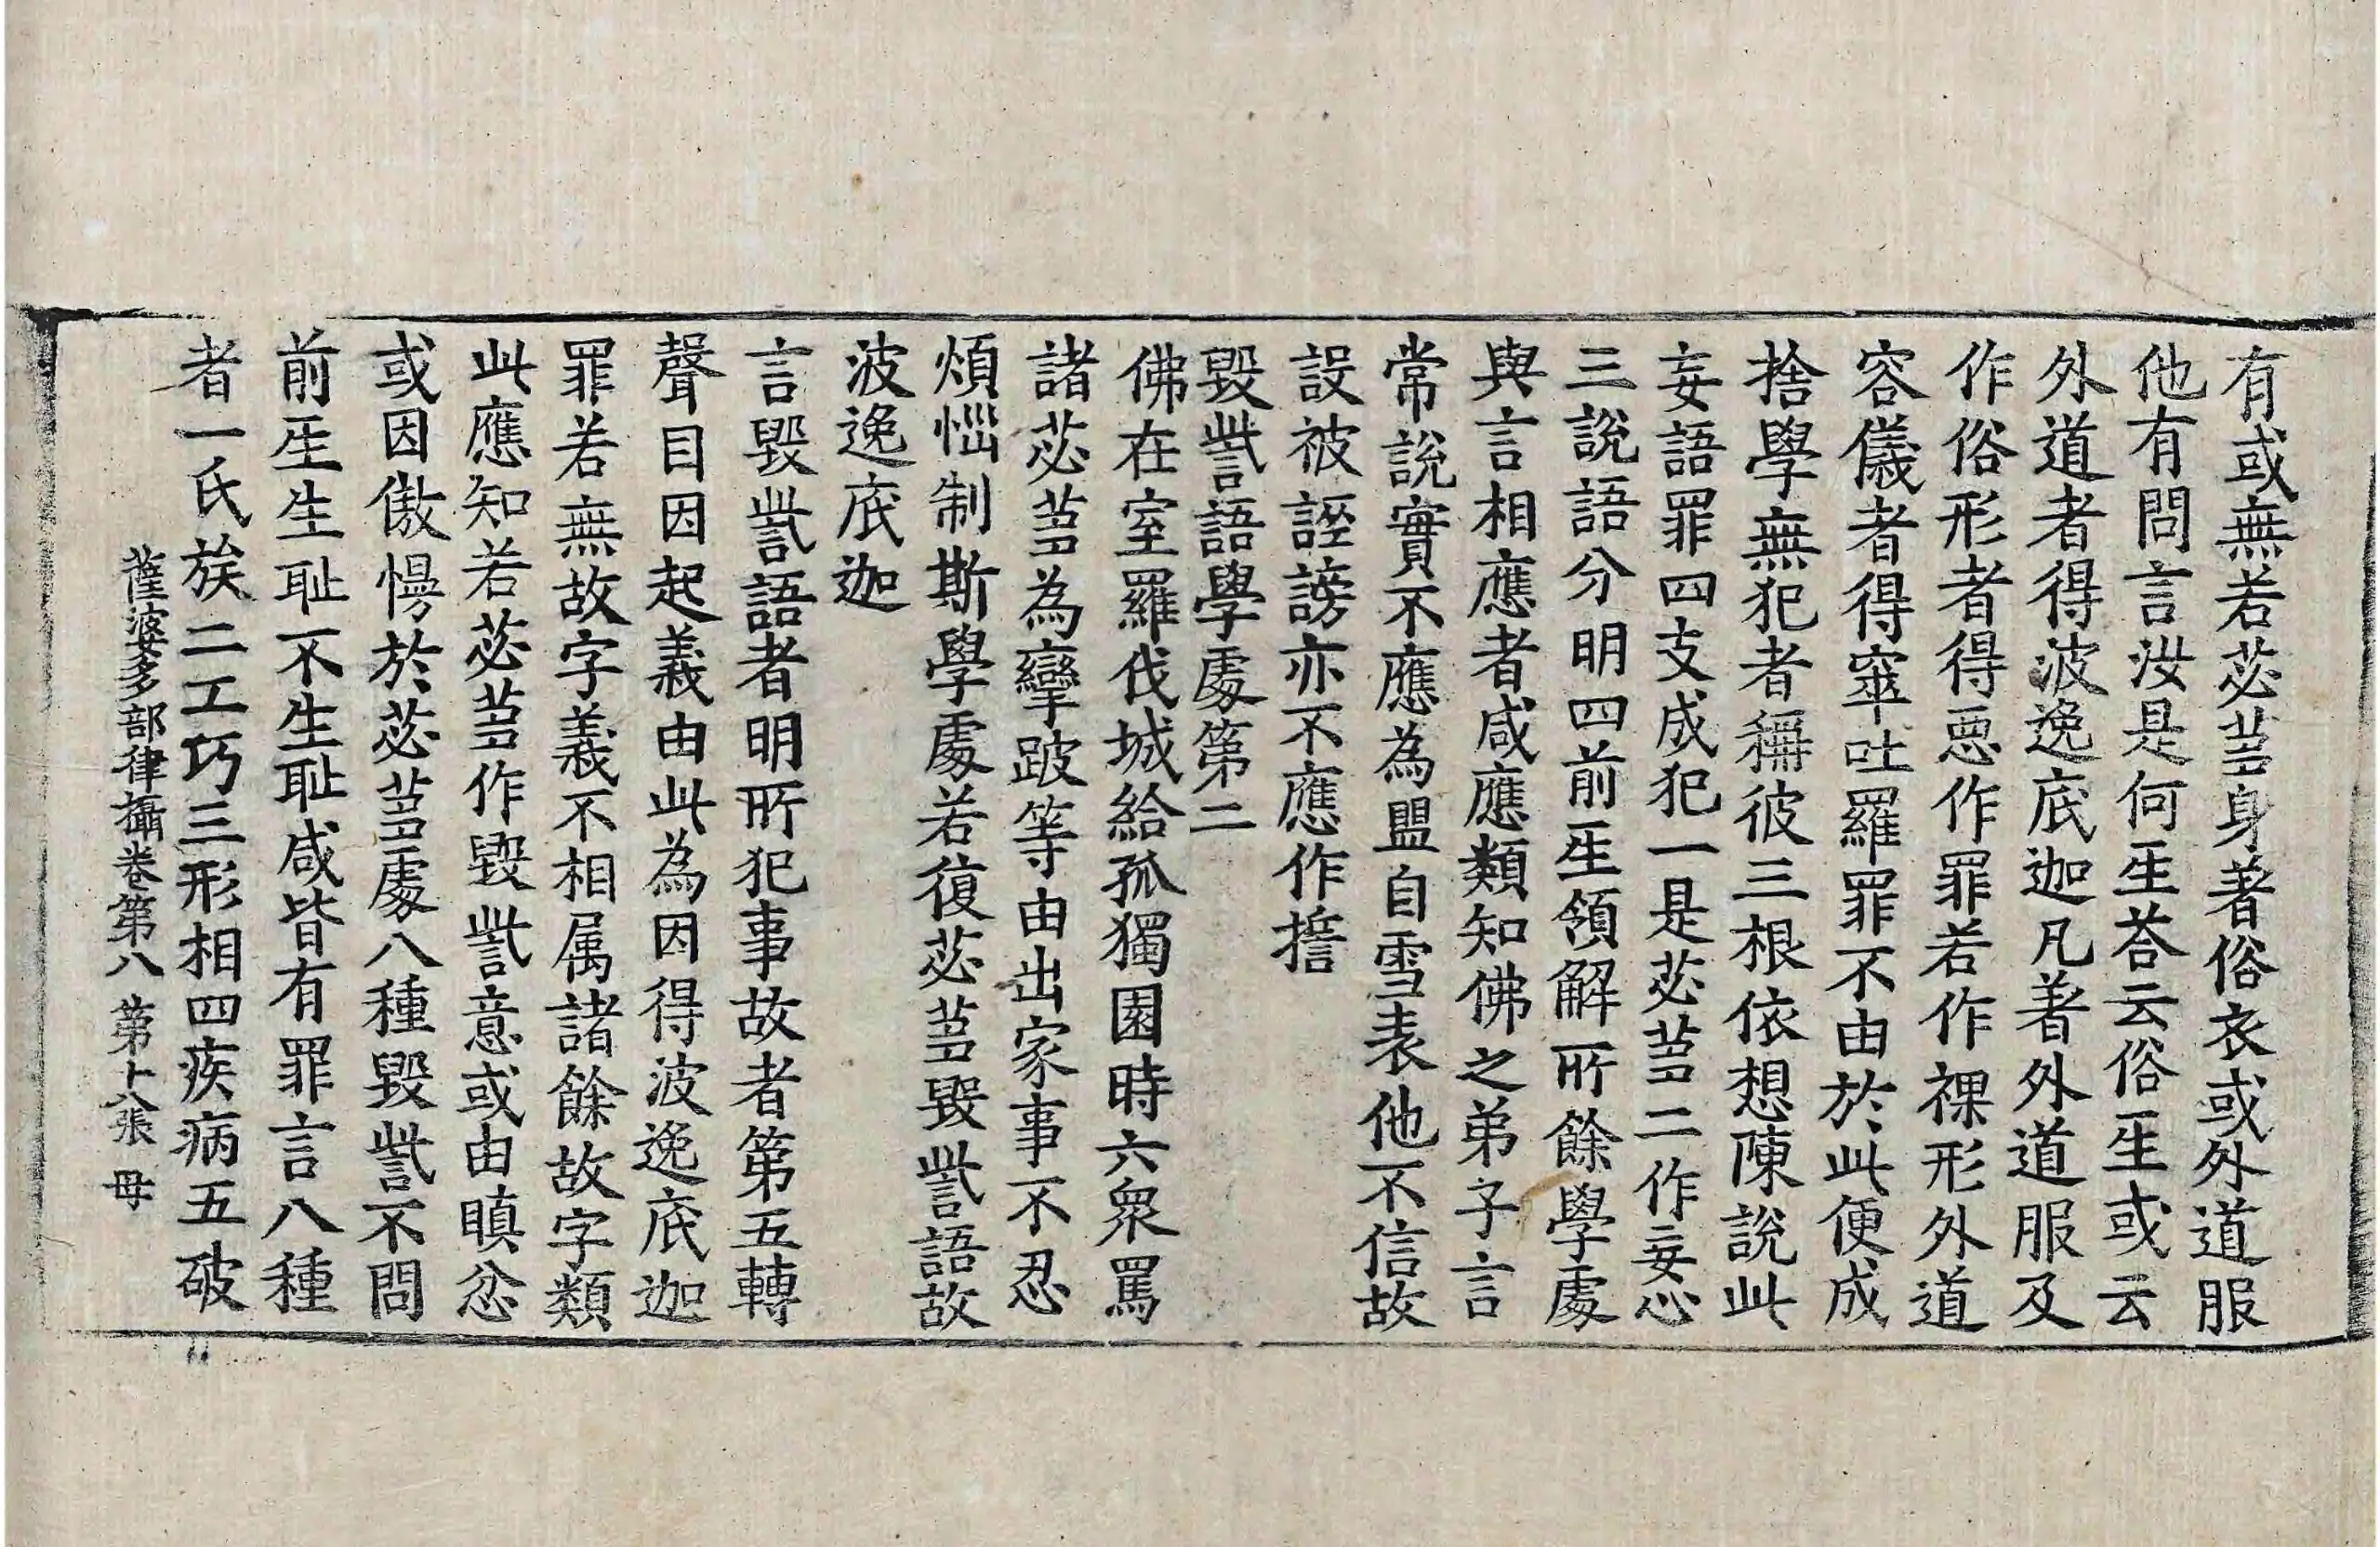 有或無若苾蒭身著俗衣或外道服
他有問言汝是何𤯔荅云俗𤯔或云
外道者得波逸底迦凡著外道服及
作俗形者得惡作罪若作裸形外道
容儀者得窣吐羅罪不由於此便成
捨學無犯者稱彼三根依想陳說此
妄語罪四支成犯一是苾蒭二作妄心
三說語分明四前𤯔領解所餘學處
與言相應者咸應類知佛之弟子言
常說實不應為盟自雪表他不信故
設被誣謗亦不應作誓
毀訾語學處第二
佛在室羅伐城給孤獨園時六衆罵
諸苾蒭為攣跛等由出家事不忍
煩惱制斯學處若復苾蒭毀訾語故
波逸底迦
言毀訾語者明所犯事故者第五轉
聲目因起義由此為因得波逸底迦
罪若無故字義不相属諸餘故字類
此應知若苾蒭作毀訾意或由瞋忿
或因傲慢於苾蒭處八種毀訾不問
前𤯔生耻不生耻咸皆有罪言八種
者一氏族二工巧三形相四疾病五破
薩婆多部律攝卷第八 第十八張 母